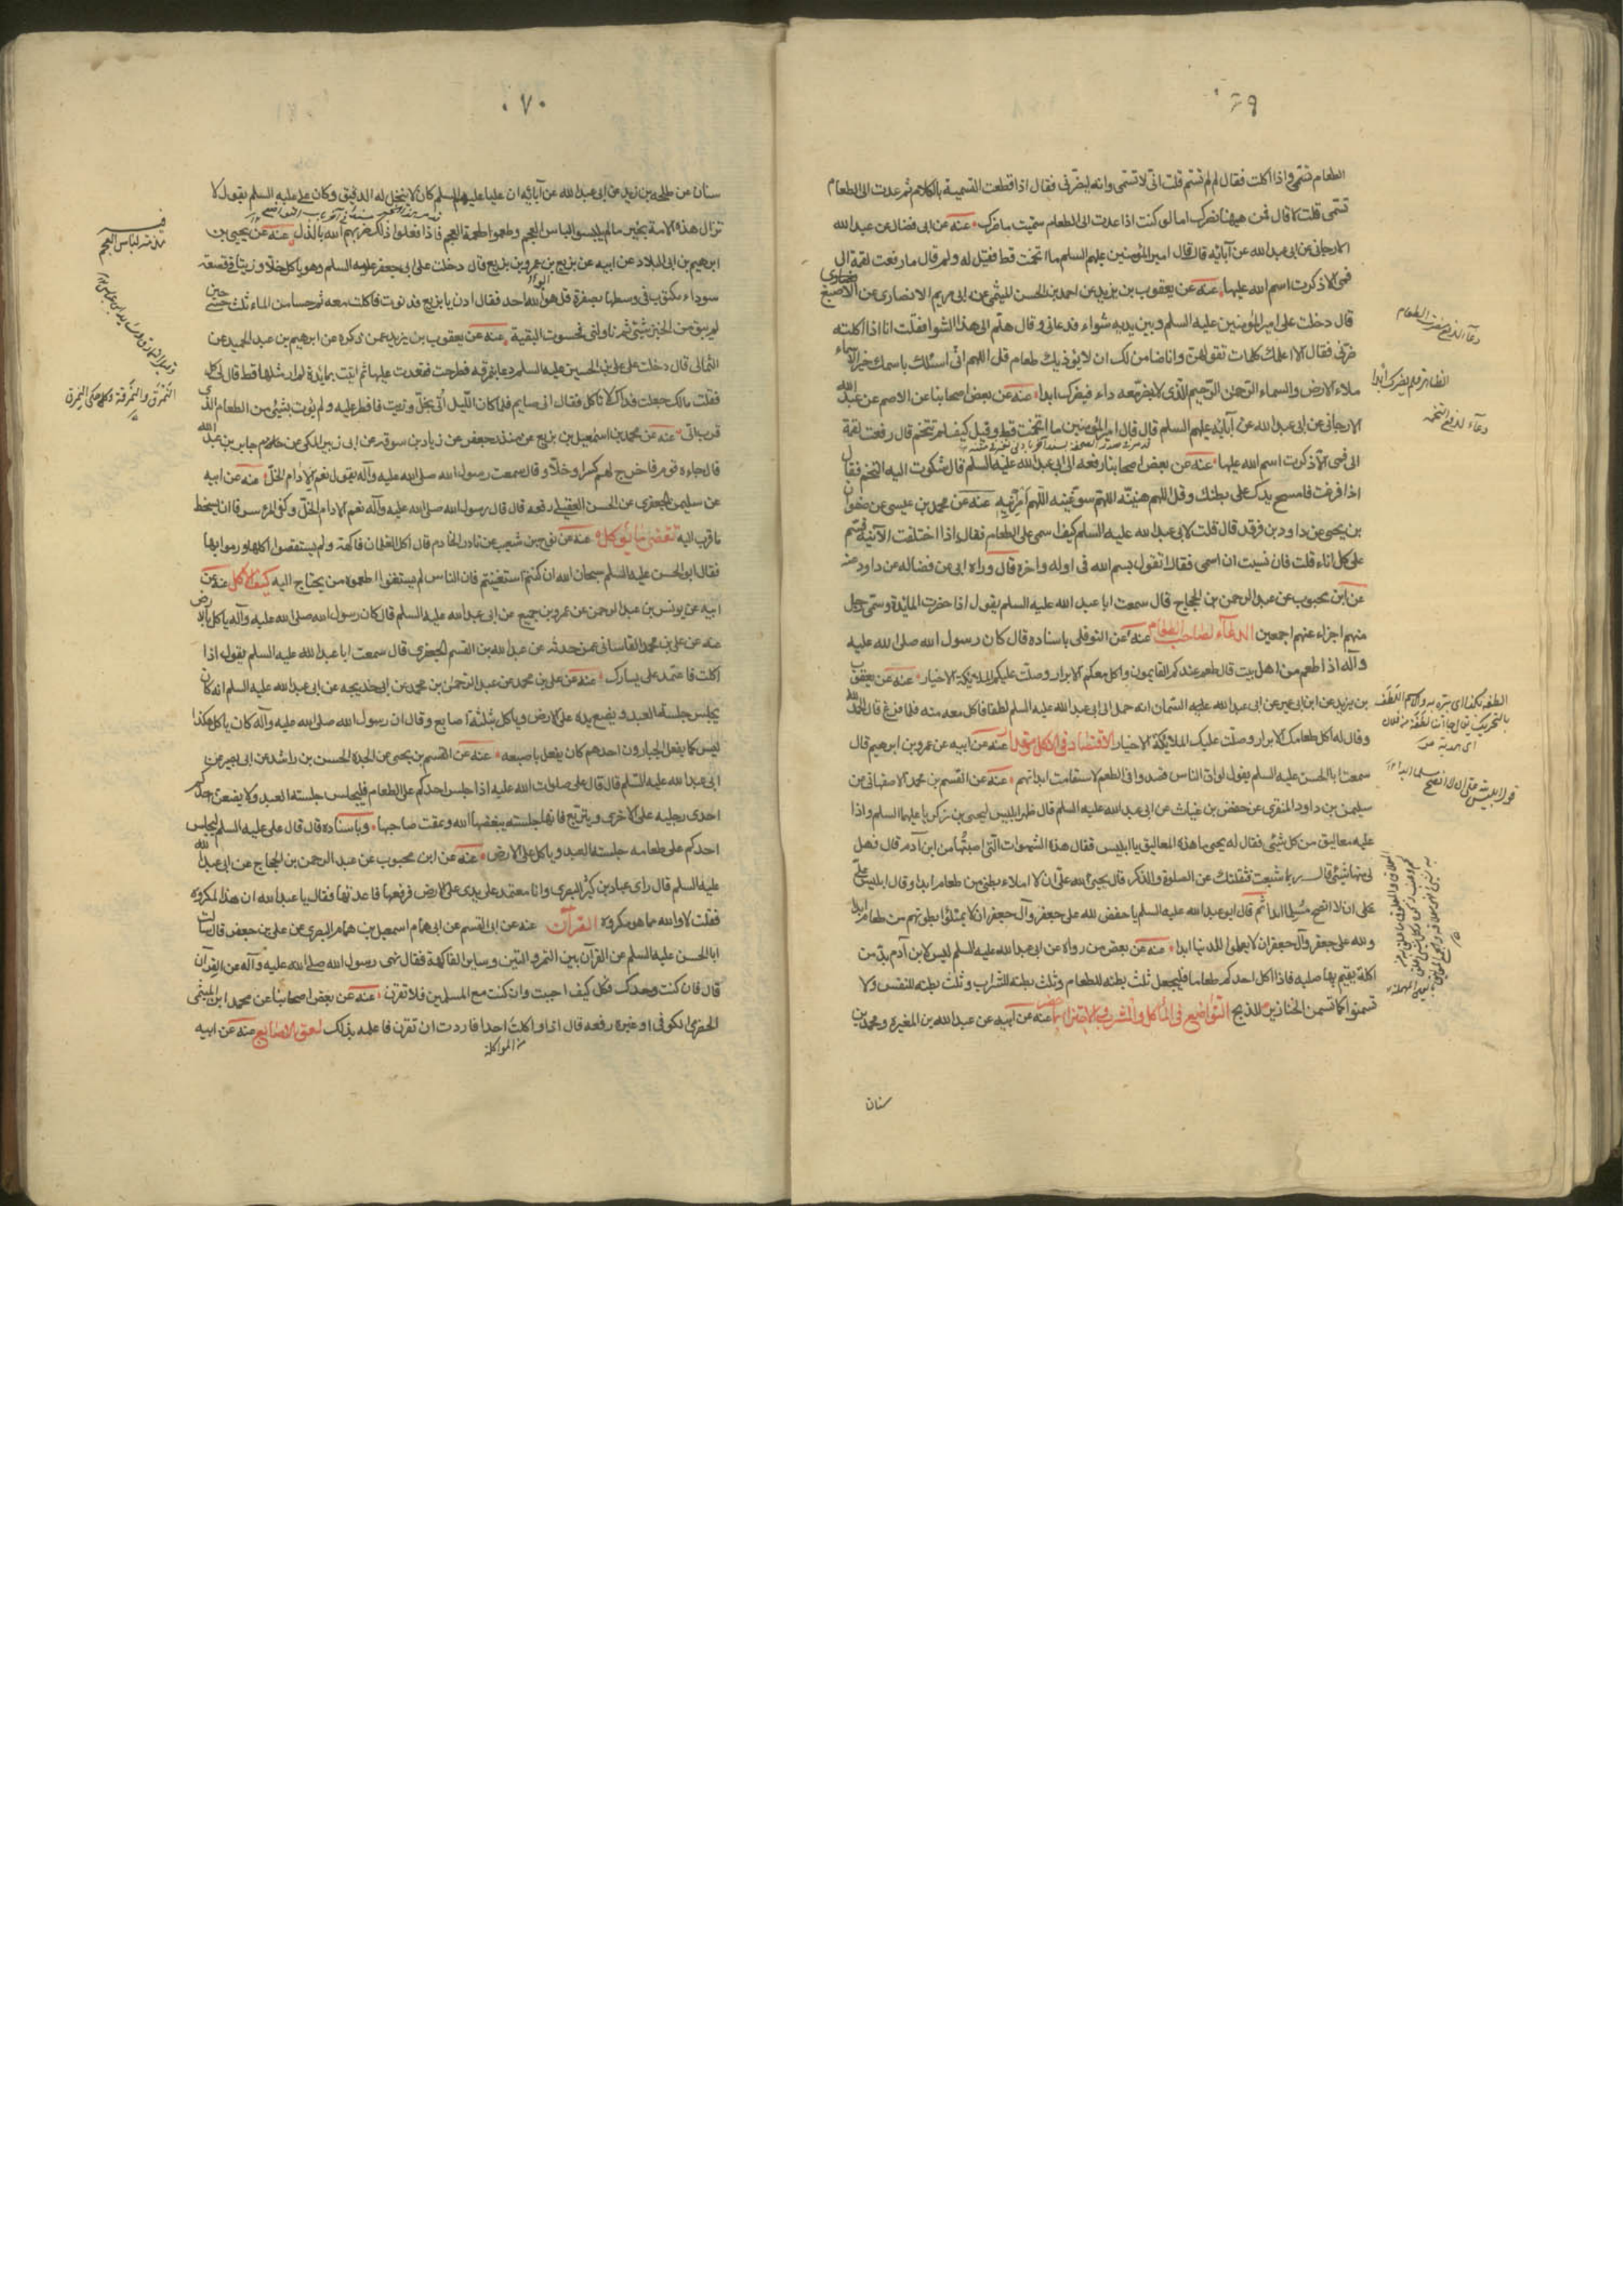 ٦٩
الطعام تسمى واذا اكلت فقال لم لم تسم قلت انى لا تسمى وانه ليضرنى فقال اذا قطعت التسمية بالكلام ثم عدت الى الطعام
تسمى قلت لا قال فمن هيهنا يضرك اما لو كنت اذا عدت الى الطعام سميت ما ضرك عنه عن ابن فضال عن عبد الله
الارجانى عن ابى عبد الله عن آبائه قال قال امير المؤمنين عليهم السلم ما اتخمت قط فقيل له ولم قال ما رفعت لقمة الى
فمى الا ذكرت اسم الله عليها عنه عن يعقوب بن يزيد عن احمد بن الحسن الميثمى عن ابى مريم الانصارى عن الاصبغ
قال دخلت على امير المؤمنين عليه السلم وبين يديه شواء فدعانى وقال هلم الى هذا الشوا فقلت انا اذا اكلته
ضرنى فقال الا اعلمك كلمات تقولهن وانا ضامن لك ان لا يوذيك طعام قل اللهم انى اسئلك باسمك خير الاسماء
ملاء الارض والسماء الرحمن الرحيم الذى لا يضر معه داء فيضرك ابدا عنه عن بعض اصحابنا عن الاصم عن عبد الله
الارجانى عن ابى عبد الله عن آبائه عليهم السلم قال قال امير المؤمنين ما اتخمت قط وقيل كيف لم تتخم قال رفعت لقمة
الى فمى الا ذكرت اسم الله عليها عنه عن بعض اصحابنا رفعه الى ابى عبد الله عليه السلم قال شكوت اليه التخم فقال
اذا فرغت فامسح يدك على بطنك وقل اللهم هنيئه اللهم سوغنيه اللهم امرئنيه عنه عن محمد بن عيسى عن صفوان
بن يحيى عن داود بن فرقد قال قلت لابى عبد الله عليه السلم كيف اسمى على الطعام فقال اذا اختلفت الآنية فسم
على كل اناء قلت فان نسيت ان اسمى فقال تقول بسم الله فى اوله واخره قال ورواه ابى عن فضاله عن داود عنه
عن ابن محبوب عن عبد الرحمن بن الحجاج قال سمعت ابا عبد الله عليه السلم يقول اذا حضرت المائدة وسمى رجل
منهم اجزاء عنهم اجمعين الدعاء لصاحب الطعام عنه عن النوفلى باسناده قال كان رسول الله صلى الله عليه
وآله اذا طعم من اهل بيت قال طعم عندكم الصايمون واكل معكم الابرار وصلت عليكم الملايكة الاخيار عنه عن يعقوب
بن يزيد عن ابن ابى عمير عن ابى عبد الله عليه السلم السمان انه حمل الى ابى عبد الله عليه السلم لطفا فاكل معه منه فلما فرغ قال الحمد لله
وقال له اكل طعامك الابرار وصلت عليك الملايكة الاخيار الاقتصاد فى الاكل وقدره عنه عن ابيه عن عمرو بن ابرهيم قال
سمعت ابا الحسن عليه السلم يقول لو ان الناس قصدوا فى الطعم لاستقامت ابدانهم عنه عن القسم بن محمد الاصفهانى عن
سليمن بن داود المنقرى عن حفص بن غياث عن ابى عبد الله عليه السلم قال ظهر ابليس ليحيى بن زكريا عليهما السلم واذا
عليه معاليق من كل شئ فقال له يحيى ما هذه المعاليق يا ابليس فقال هذه الشهوات التى اصبتها من ابن آدم قال فهل
لى منها شئ قال ربما شبعت فثقلتك عن الصلوة والذكر قال يحيى لله على ان لا املاء بطنى من طعام ابدا وقال ابليس لله
على ان لا انصح مسلما ابدا ثم قال ابو عبد الله عليه السلم يا حفص لله على جعفر وآل جعفر ان لا يمتلؤا بطونهم من طعام ابدا
ولله على جعفر وآل جعفر ان لا يعملوا للدنيا ابدا عنه عن بعض من رواه عن ابى عبد الله عليه السلم ليس لابن آدم بد من
اكلة يقيم بها صلبه فاذا اكل احدكم طعاما فليجعل ثلث بطنه للطعام وثلث بطنه للشراب وثلث بطنه للنفس ولا
تسمنوا كما تسمن الخنازير للذبح التواضع فى المأكل والمشرب والاقتصار عنه عن ابيه عن عبد الله بن المغيرة ومحمد بن
سنان
دعاء لدفع مضرت الطعام
دعاء لدفع التخمه
٧٠
سنان عن طلحه بن زيد عن ابى عبد الله عن آبائه ان عليا عليهم السلم كان لا ينخل له الدقيق وكان على عليه السلم يقول لا
تزال هذه الامة بخير ما لم يلبسوا لباس العجم وطعموا اطعمة العجم فاذا فعلوا ذلك ضربهم الله بالذل عنه عن يحيى بن
ابرهيم بن ابى البلاد عن ابيه عن بزيع بن عمرو بن بزيع قال دخلت على ابى جعفر عليه السلم وهو ياكل خلا وزيتا فى قصعة
سوداء مكتوب فى وسطها بصفرة قل هو الله احد فقال ادن يا بزيع فدنوت فاكلت معه ثم حسا من الماء ثلث حسيات حين
لم يبق من الخبز شئ ثم ناولنى فحسوت البقية عنه عن يعقوب بن يزيد عمن ذكره عن ابرهيم بن عبد الحميد عن
الثمالى قال دخلت على على بن الحسين عليه السلم دعا بنمرقه فطرحت فقعدت عليها ثم اتيت بمائدة لم ار مثلها قط قال لى كل
فقلت مالك جعلت فداك لا تاكل فقال انى صايم فلما كان الليل اتى بخل وزيت فافطر عليه ولم يؤت بشئ من الطعام الذى
قرب الى عنه عن محمد بن اسمعيل بن بزيع عن منذر جعفر عن زياد بن سوقه عن ابى زبير المكى عن جابر بن عبد الله
قال جاءه قوم فاخرج لهم كسرا وخلا وقال سمعت رسول الله صلى الله عليه وآله يقول نعم الادام الخل عنه عن ابيه
عن سليمن الجعفرى عن الحسن العقيلى رفعه قال قال رسول الله صلى الله عليه وآله نعم الادام الخل وكفى المرء سرفا ان يسخط
ما قرب اليه تقصى ما يؤكل عنه عن نوح بن شعيب عن نادر الخادم قال اكل الغلمان فاكهة ولم يستقصوا اكلها ورموا بها
فقال ابو الحسن عليه السلم سبحان الله ان كنتم استغنيتم فان الناس لم يستغنوا اطعموه من يحتاج اليه كيف الاكل عنه عن
ابيه عن يونس بن عبد الرحمن عن عمرو بن جميع عن ابى عبد الله عليه السلم قال كان رسول الله صلى الله عليه وآله ياكل بالارض
عنه عن على بن محمد القاسانى عمن حدثه عن عبد الله بن القسم الجعفرى قال سمعت ابا عبد الله عليه السلم يقول اذا
اكلت فاعتمد على يسارك عنه عن على بن محمد عن عبد الرحمن بن محمد عن ابى خديجه عن ابى عبد الله عليه السلم انه كان
يجلس جلسة العبد ويضع يده على الارض وياكل بثلثة اصابع وقال ان رسول الله صلى الله عليه وآله كان ياكل هكذا
ليس كما يفعل الجبارون احدهم كان يفعل باصبعه عنه عن القسم بن يحيى عن الجده الحسن بن راشد عن ابى بصير عن
ابى عبد الله عليه السلم قال قال على صلوات الله عليه اذا جلس احدكم على الطعام فليجلس جلسة العبد ولا يضعن احدكم
احدى رجليه على الاخرى ويتربع فانها جلسة يبغضها الله ويمقت صاحبها وباسناده قال قال على عليه السلم ليجلس
احدكم على طعامه جلسة العبد وياكل على الارض عنه عن ابن محبوب عن عبد الرحمن بن الحجاج عن ابى عبد الله
عليه السلم قال راى عباد بن كثير البصرى وانا معتمد على يدى على الارض فرفعها فاعدتها فقال يا عبد الله ان هذا لمكروه
فقلت لا والله ما هو مكروه القرآن عنه عن ابى القسم عن ابى همام اسمعيل بن همام البصرى عن على بن جعفر قال سالت
ابا الحسن عليه السلم عن القرآن بين التمر والتين وساير الفاكهة فقال نهى رسول الله صلى الله عليه وآله عن القرآن
قال فان كنت وحدك فكل كيف احببت وان كنت مع المسلمين فلا تقرن عنه عن بعض اصحابنا عن محمد بن المثنى
الحضرمى الكوفى او غيره رفعه قال اذا واكلت احدا فاردت ان تقرن فاعلمه بذلك لعق الاصابع عنه عن ابيه
من المواكلة